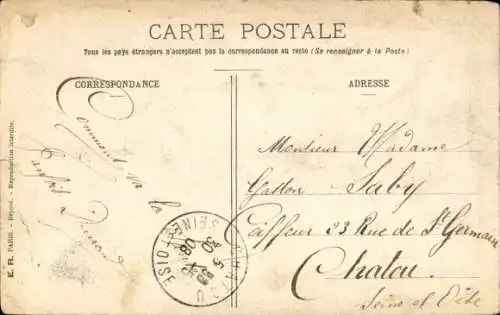 CARTE POSTALE
Tous les pays étrangers n'acceptent pas la correspondance au recto (Se renseigner à la Poste)
CORRESPONDANCE
ADRESSE
Comment va la
Monsieur Madame
Gaston Saby
Coiffeur 33 Rue de St Germain
Chatou
Seine et Oise
CHATOU
SEINE-ET-OISE
E. Fr. PARIS. - Déposé. - Reproduction interdite.